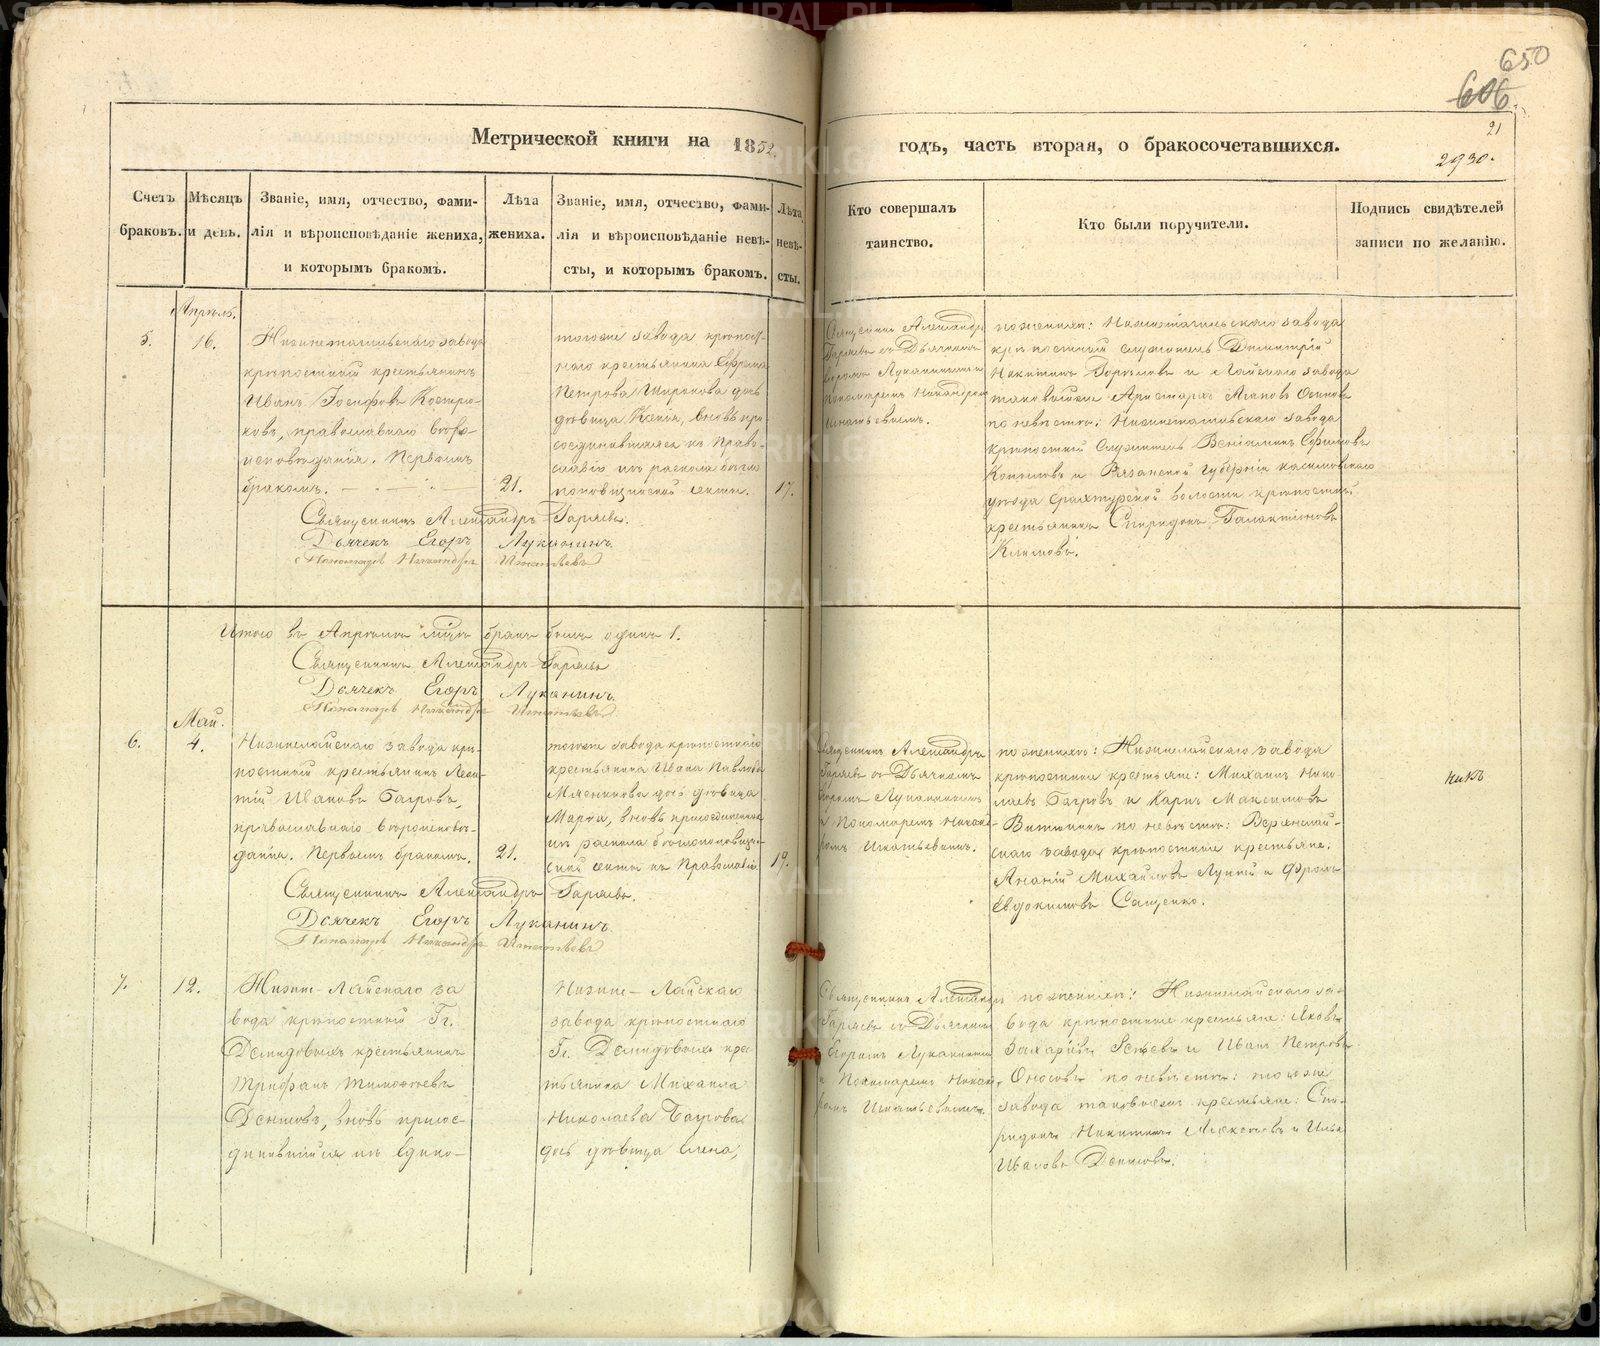 650
606.
Метрической книги на 1852. годъ, часть вторая, о бракосочетавшихся.
21
2930.
Счетъ
браковъ.
Мѣсяцъ
и день.
Званіе, имя, отчество, фами-
лія и вѣроисповѣданіе жениха,
и которымъ бракомъ.
Лѣта
жениха.
Званіе, имя, отчество, фами-
лія и вѣроисповѣданіе невѣ-
сты, и которымъ бракомъ.
Лѣта
невѣ-
сты.
Кто совершалъ
таинство.
Кто были поручители.
Подпись свидѣтелей
записи по желанію.
Апрѣль.
5.
16.
Нижнетагильскаго завода
крѣпостный крестьянинъ
Иванъ Іосифовъ Костро-
ковъ, православнаго вѣро-
исповѣданія. Первымъ
бракомъ.
21.
тогоже завода крѣпост-
наго крестьянина Ефрема
Петрова Ширинкова дочь
дѣвица Ксенія, вновь при-
соединившаяся къ Право-
славію изъ раскола бѣгло
поповщинской секты.
17.
Священникъ Александръ
Гаряевъ съ Дьячкомъ
Егоромъ Луканинымъ и
Пономаремъ Никандромъ
Игнатьевымъ.
по женихѣ: Нижнетагильскаго завода
крѣпостный служитель Димитрій
Никитинъ и Лайскаго завода
таковыйже Аристархъ Осиповъ
по невѣстѣ: Нижнетагильскаго завода
крѣпостный служитель Веніаминъ Ефимовъ
Копыловъ и Рязанской губерніи касимовскаго
уѣзда волости крѣпостный
крестьянинъ Спиридонъ Галактіоновъ
Климовъ.
Священникъ Александръ Гаряевъ.
Дьячекъ Егоръ Луканинъ.
Пономарь Никандръ Игнатьевъ
Итого въ Апрѣлѣ мцѣ бракъ былъ одинъ 1.
Священникъ Александръ Гаряевъ
Дьячекъ Егоръ Луканинъ.
Пономарь Никандръ Игнатьевъ
Май.
6.
4.
Нижнелайскаго завода крѣ-
постный крестьянинъ Леон-
тій Ивановъ Багровъ,
православнаго вѣроисповѣ-
данія. Первымъ бракомъ.
21.
тогоже завода крѣпостнаго
крестьянина Ивана Павлова
Мясникова дочь дѣвица
Марѳа, вновь присоединенная
изъ раскола бѣглопоповщин-
ской секты къ Православію.
19.
Священникъ Александръ
Гаряевъ съ Дьячкомъ
Егоромъ Луканинымъ
и Пономаремъ Никанд-
ромъ Игнатьевымъ.
по женихѣ: Нижнелайскаго завода
крѣпостные крестьяне: Михаилъ Нико
лаевъ Багровъ и Карпъ Максимовъ
по невѣстѣ: Верхнелай-
скаго завода крѣпостные крестьяне:
Ананій Михайловъ и Фролъ
Евдокимовъ Сащенко.
Священникъ Александръ Гаряевъ.
Дьячекъ Егоръ Луканинъ.
Пономарь Никандръ Игнатьевъ
7.
12.
Нижне-Лайскаго за
вода крѣпостный Гг.
Демидовыхъ крестьянинъ
Трифанъ Тимофѣевъ
Денисовъ, вновь присое-
динившійся къ едино-
Нижне-Лайскаго
завода крѣпостнаго
Гг. Демидовыхъ крес-
тьянина Михаила
Николаева Багрова
дочь дѣвица Елена,
Священникъ Александръ
Гаряевъ съ Дьячкомъ
Егоромъ Луканинымъ
и Пономаремъ Никан-
дромъ Игнатьевымъ.
по женихѣ: Нижнелайскаго за-
вода крѣпостные крестьяне: Яковъ
Захаровъ и Иванъ Петровъ
Оносовъ по невѣстѣ: тогоже
завода таковыеже крестьяне: Спи-
ридонъ Никитинъ Алексѣевъ и Илья
Ивановъ Денисовъ.
METRIKI.GASO-URAL.RU